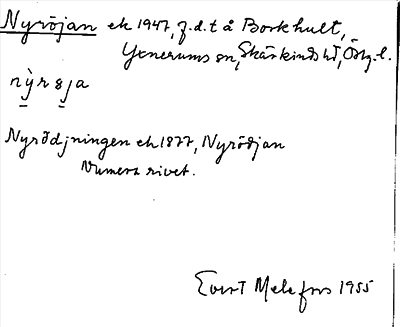 Nyröjan ek 1947, f.d.t å Borkhult,
Yxnerums sn, Skärkinds hd, Östg. l.
nỳrøja
Nyrödjningen ek 1877, Nyrödjan
Numera rivet.
Evert Melefors 1955